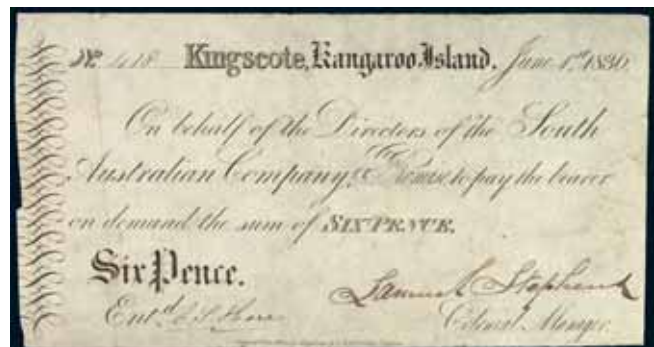 No. 418 Kingscote, Kangaroo Island. June 1st 1836.
On behalf of the Directors of the South
Australian Company, I Promise to pay the bearer
on demand the sum of SIX PENCE.
Six Pence.
Samuel Stephens
Ent.d
Colonial Manager.